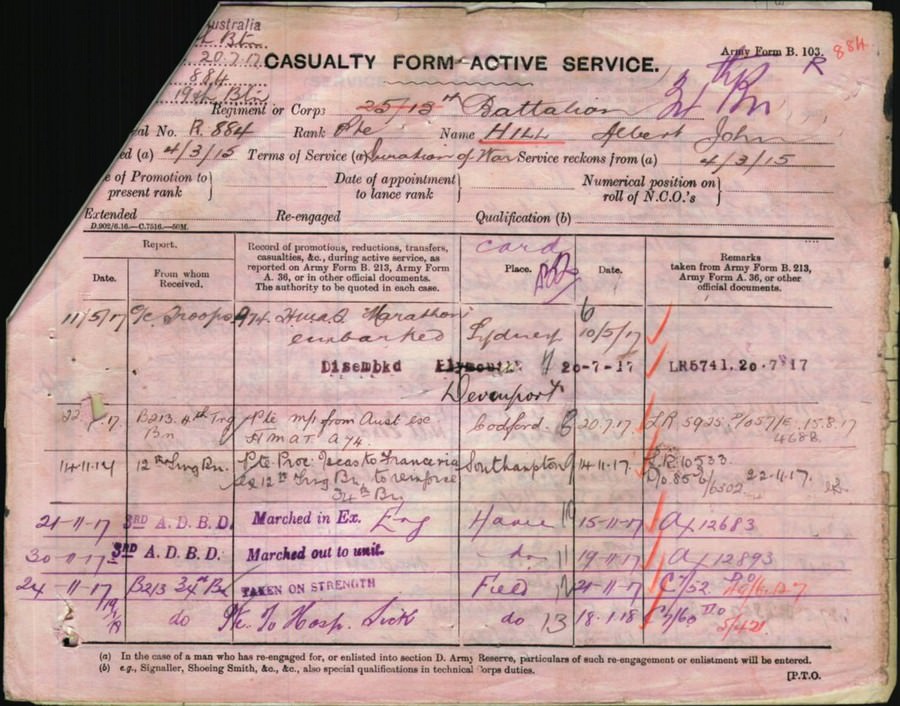 ustralia
Btn
20.7.17
884
19th Btn
Army Form B. 103.
884
R
CASUALTY FORM-ACTIVE SERVICE.
Regiment or Corps 25/13th Battalion 34th Bn
al No. R. 884 Rank Pte Name HILL Albert John
ed (a) 4/3/15 Terms of Service (a) Duration of War Service reckons from (a) 4/3/15
e of Promotion to present rank
Date of appointment to lance rank
Numerical position on roll of N.C.O.'s
Extended Re-engaged Qualification (b)
D.902/6.16.—C.7516.—50M.
card
Report.
Date.
From whom Received.
Record of promotions, reductions, transfers, casualties, &c., during active service, as reported on Army Form B. 213, Army Form A. 36, or in other official documents. The authority to be quoted in each case.
Place.
Date.
Remarks taken from Army Form B. 213, Army Form A. 36, or other official documents.
11/5/17 O/c Troops A74 H.M.A.S Marathon embarked Sydney 6 10/5/17
Disembkd Plymouth 20-7-17 LR5741. 20.7.17
Devonport
22. .17 B213. 4th Trg Bn Pte m/i from Aust exc HMAT A74. Codford 20.7.17. LR 5925 15.8.17
4688
14.11.17 12th Trng Bn. Pte Proc: Oseas to France via Southampton 14.11.17. L.R.10533
12th Trng Bn, to reinforce 34th Bn 22.11.17.
21-11-17 3RD A.D.B.D. Marched in Ex. Eng Havre 10 15-11-17 A/12683
30-11-17 3RD A.D.B.D. Marched out to unit. do 11 19-11-17 A/12893
24-11-17 B213 34th Bn TAKEN ON STRENGTH Field 12 21-11-17
19/1/18 do Pte. To Hosp. Sick do 13 18.1.18 5/421
(a) In the case of a man who has re-engaged for, or enlisted into section D. Army Reserve, particulars of such re-engagement or enlistment will be entered.
(b) e.g., Signaller, Shoeing Smith, &c., &c., also special qualifications in technical Corps duties.
[P.T.O.